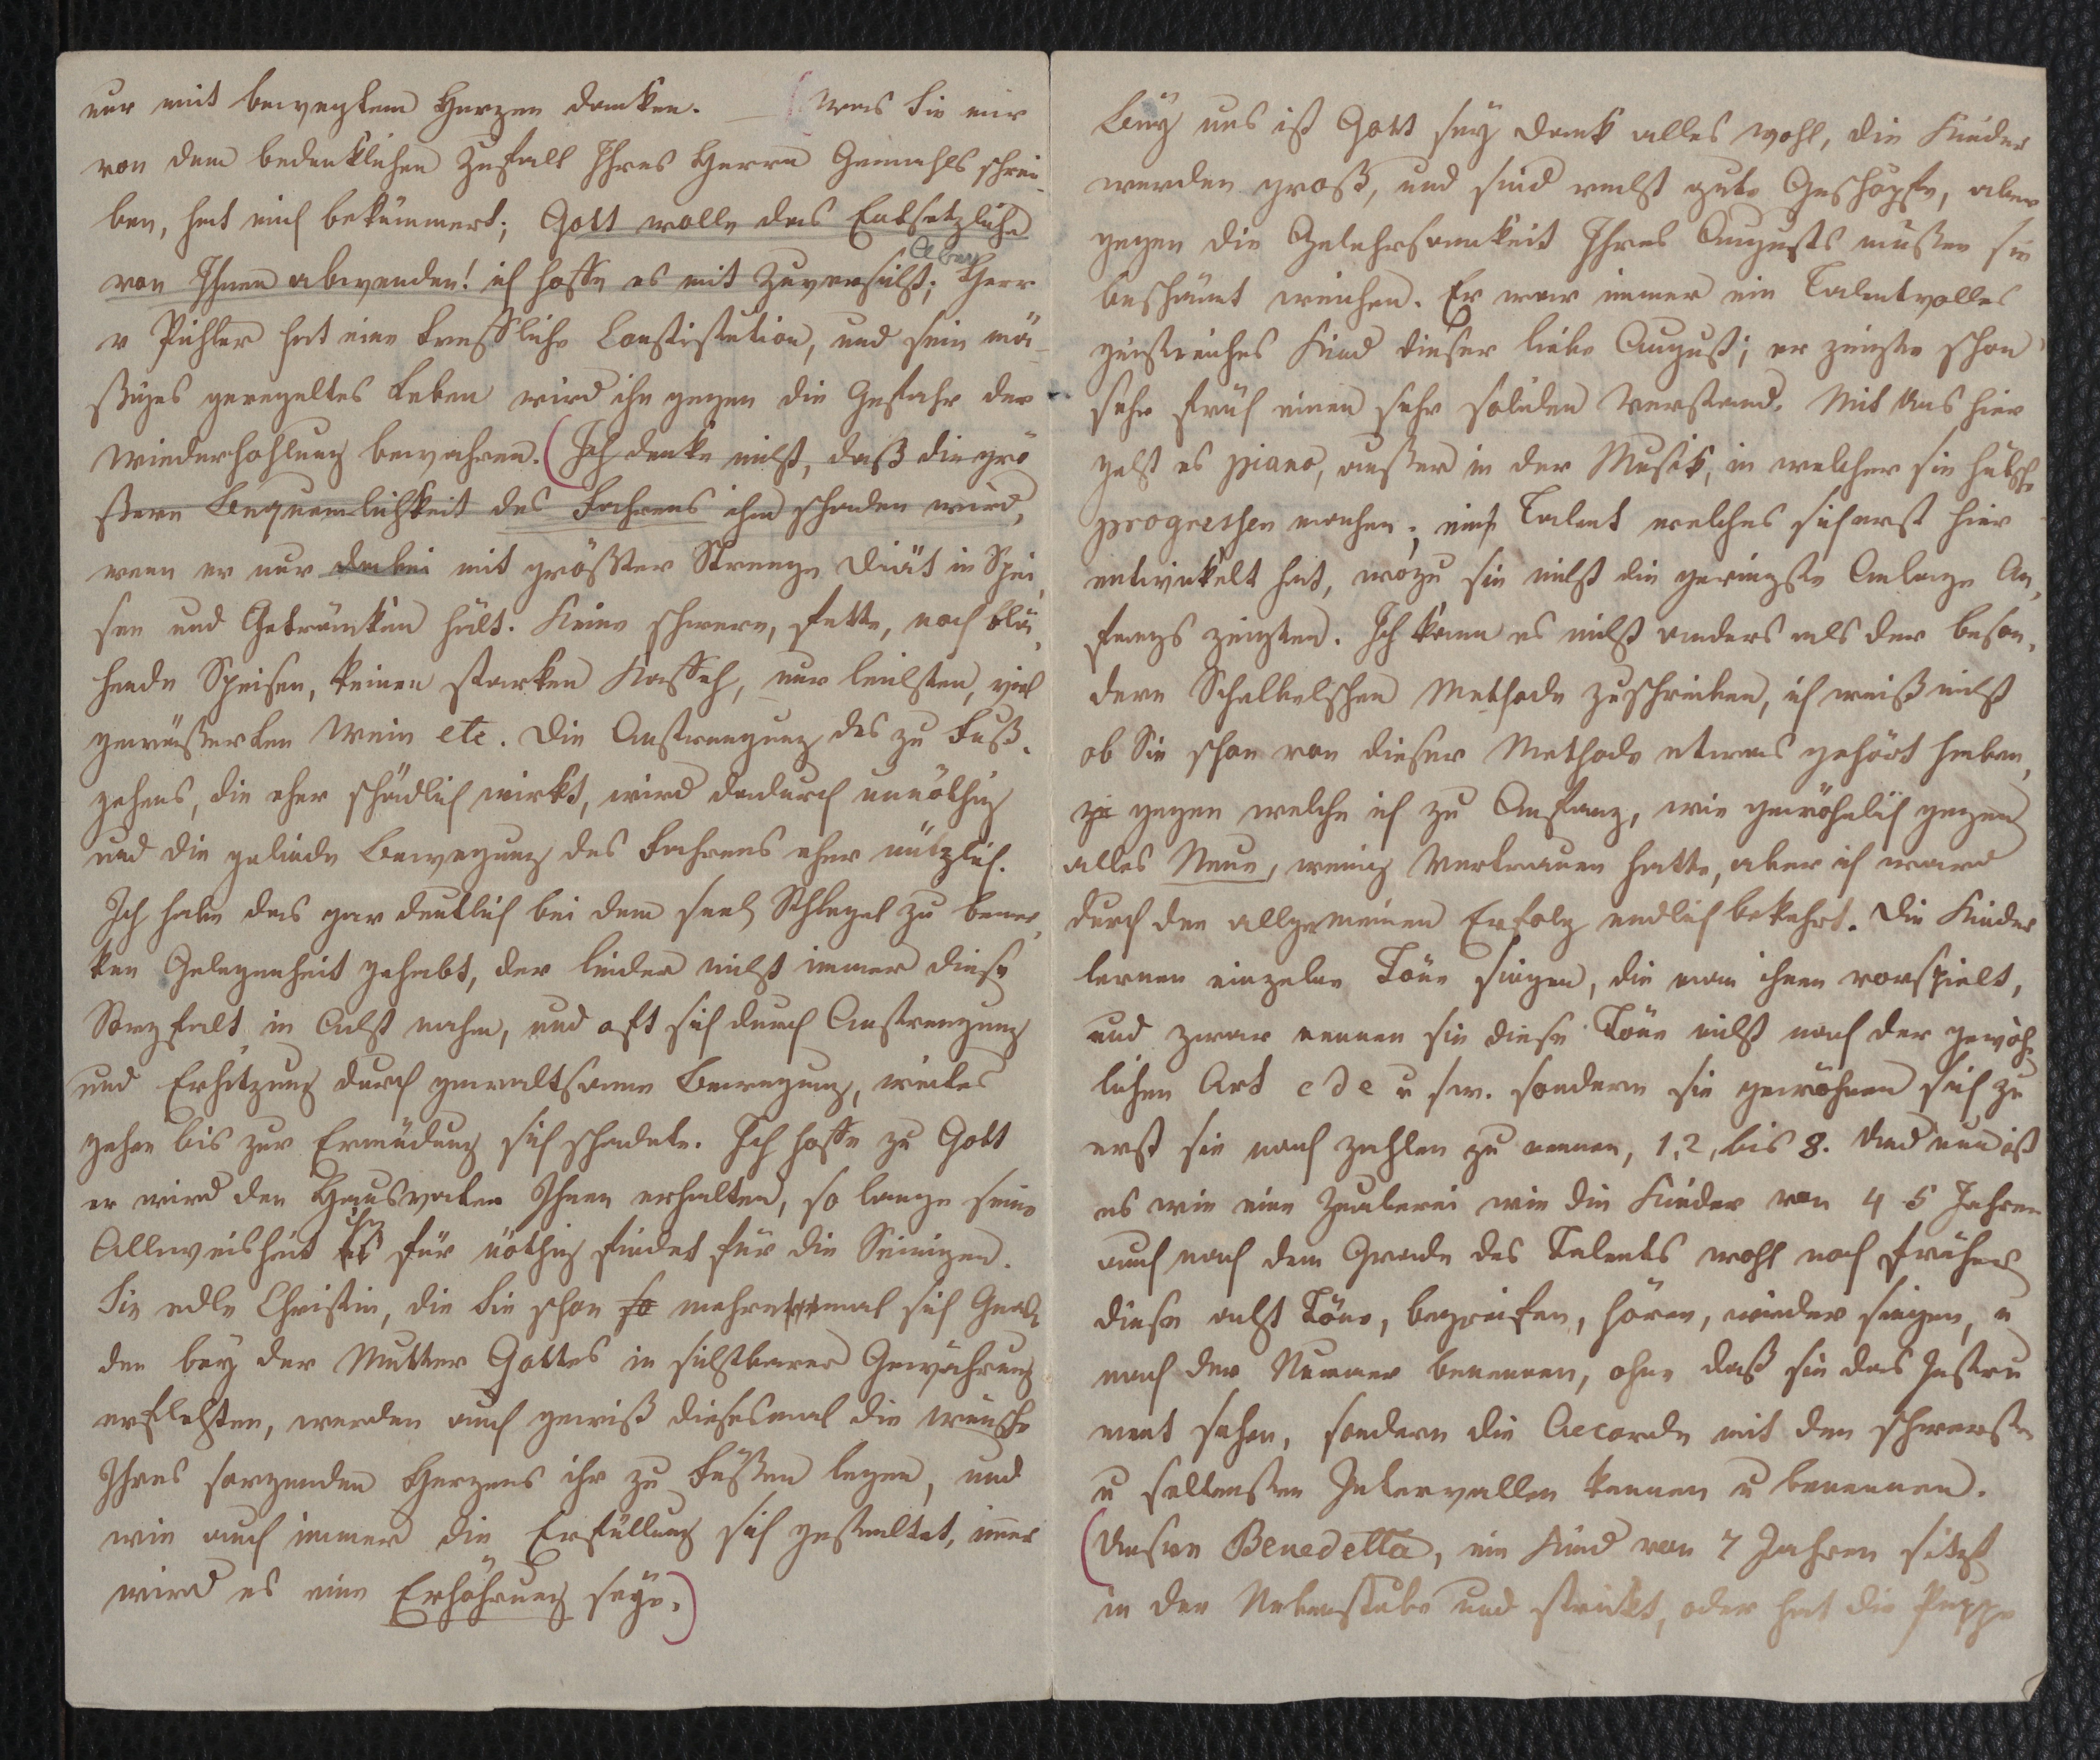 nur mit bewegtem Herzen danken. — (Was Sie mir
von dem bedenklichen Zufall Ihres Herrn Gemahls schrei-
ben, hat mich bekümmert; Gott wolle das Entsetzliche
von Ihnen abwenden! ich hoffe es mit Zuversicht; Aber Herr
v Pichler hat eine treffliche Constitution, und sein mä-
ßiges geregeltes Leben wird ihn gegen die Gefahr der
Wiederhohlung bewahren. (Ich denke nicht, daß die grö
ßere Bequemlichkeit des Fahrens ihm schaden wird,
wenn er nur dabei mit größter Strenge Diät in Spei,
sen und Getränken hält. Keine schwere, fette, noch blä,
hende Speisen, keinen starken Kaffeh, nur leichten, viel
gewäßerten Wein etc. Die Anstrengung des zu Fuß-
gehens, die eher schädlich wirkt, wird dadurch unnöthig
und die gelinde Bewegung des Fahrens eher nützlich.
Ich habe das gar deutlich bei dem seel Schlegel zu bemer,
ken Gelegenheit gehabt, der leider nicht immer diese
Sorgfalt in Acht nahm, und oft sich durch Anstrengung
und Erhitzung durch gewaltsame Bewegung, weites
gehen bis zur Ermüdung sich schadete. Ich hoffe zu Gott
er wird den Hausvater Ihnen erhalten, so lange seine
Allweisheit es ihn für nöthig findet für die Seinigen.
Sie edle Christin, die Sie schon so mehreremal sich Gna
den bey der Mutter Gottes in sichtbarer Gewährung
erflehten, werden auch gewiß diesesmal die Wünsche
Ihres sorgenden Herzens ihr zu Füßen legen, und
wie auch immer die Erfüllung sich gestaltet, im̄er
wird es eine Erhöhrung seyn.)
Bey uns ist Gott sey dank alles wohl, die Kinder
werden groß, und sind recht gute Geschöpfe, aber
gegen die Gelehrsamkeit Ihres Augusts müßen sie
beschämt weichen. Er war immer ein Talentvolles
geistreiches Kind dieser liebe August; er zeigte schon
sehr früh einen sehr soliden Verstand. Mit Uns hier
geht es piano, außer in der Musik, in welcher sie hübsche
progressen machen; ein Talent welches sich erst hier
entwickelt hat, wozu sie nicht die geringste Anlage An,
fangs zeigten. Ich kann es nicht anders als der beson,
dern Schelbelschen Methode zuschreiben, ich weiß nicht
ob Sie schon von dieser Methode etwas gehört haben,
ge gegen welche ich zu Anfang, wie gewöhnlich gegen
alles Neue, wenig Vertrauen hatte, aber ich ward
durch den allgemeinen Erfolg endlich bekehrt. Die Kinder
lernen einzelne Töne singen, die man ihnen vorspielt,
und zwar nennen sie diese Töne nicht nach der gewöhn
lichen Art c d e u sw. sondern sie gewöhnen sich zu
erst sie nach zahlen zu nennen, 1, 2, bis 8. Und nun ist
es wie eine Zauberei wie die Kinder von 4 5 Jahren
auch nach dem Grade des Talents wohl noch früher
diese acht Töne, begreifen, hören, wieder singen, u
nach der Numer benennen, ohne daß sie das Instru
ment sehen, sondern die Accorde mit den schwersten
u seltensten Intervallen kennen u benennen.
(Unsere Benedetta, ein Kind von 7 Jahren sitzt
in der Nebenstube und strickt, oder hat die Puppe